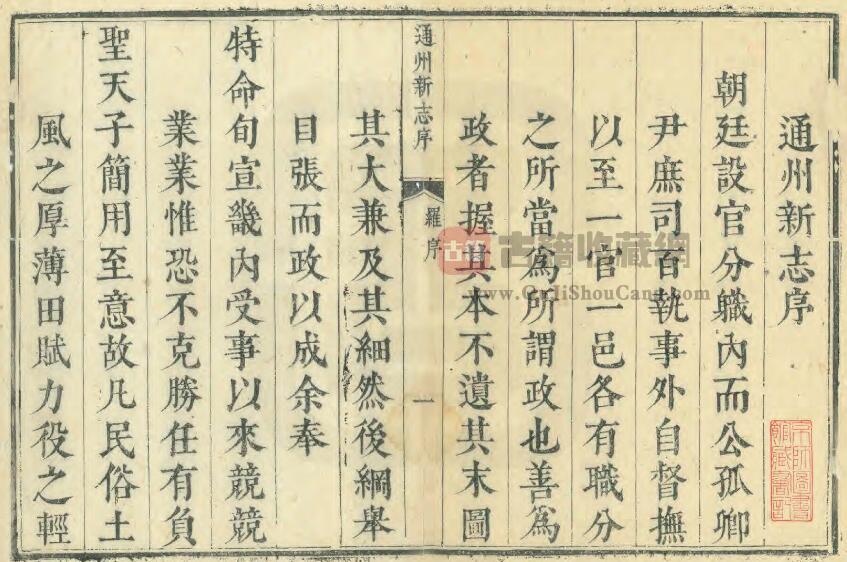 通州新志序
朝廷設官分職內而公孤卿
尹庶司百執事外自督撫
以至一官一邑各有職分
之所當為所謂政也善為
政者握其本不遺其末圖
通州新志序
羅序
一
其大兼及其細然後綱舉
目張而政以成余奉
特命旬宣畿內受事以來競競
業業惟恐不克勝任有負
聖天子簡用至意故凡民俗土
風之厚薄田賦力役之輕
京師圖書
館藏書記
古籍
古籍收藏網
www.GuJiShouCang.com